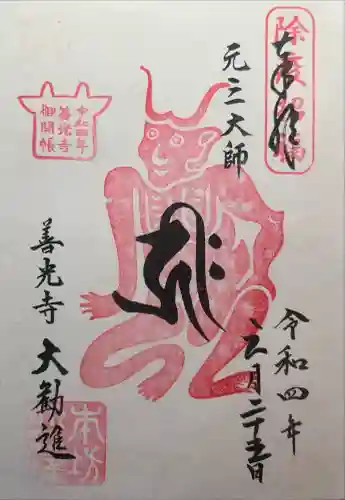 除疫招福
奉拝
令和四年
六月二十五日
元三大師
令和四年
善光寺
御開帳
善光寺 大勧進
本坊